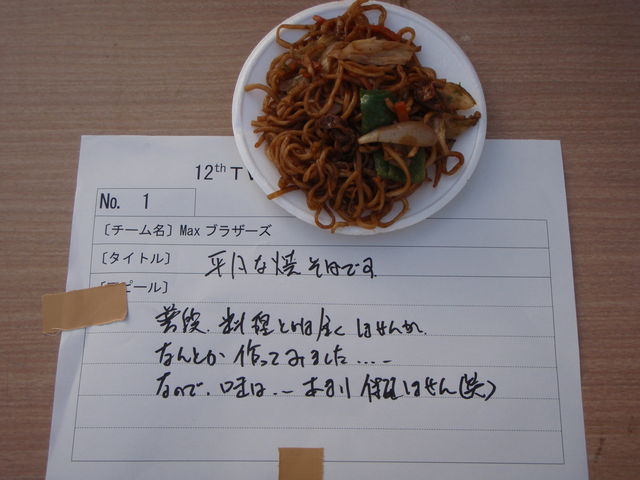 12th TV
No. 1
〔チーム名〕Maxブラザーズ
〔タイトル〕 平凡な焼そばです
ピール〕
普段、料理とは全く しませんが、
なんとか 作ってみました….
なので、味は… 保証しません(笑)